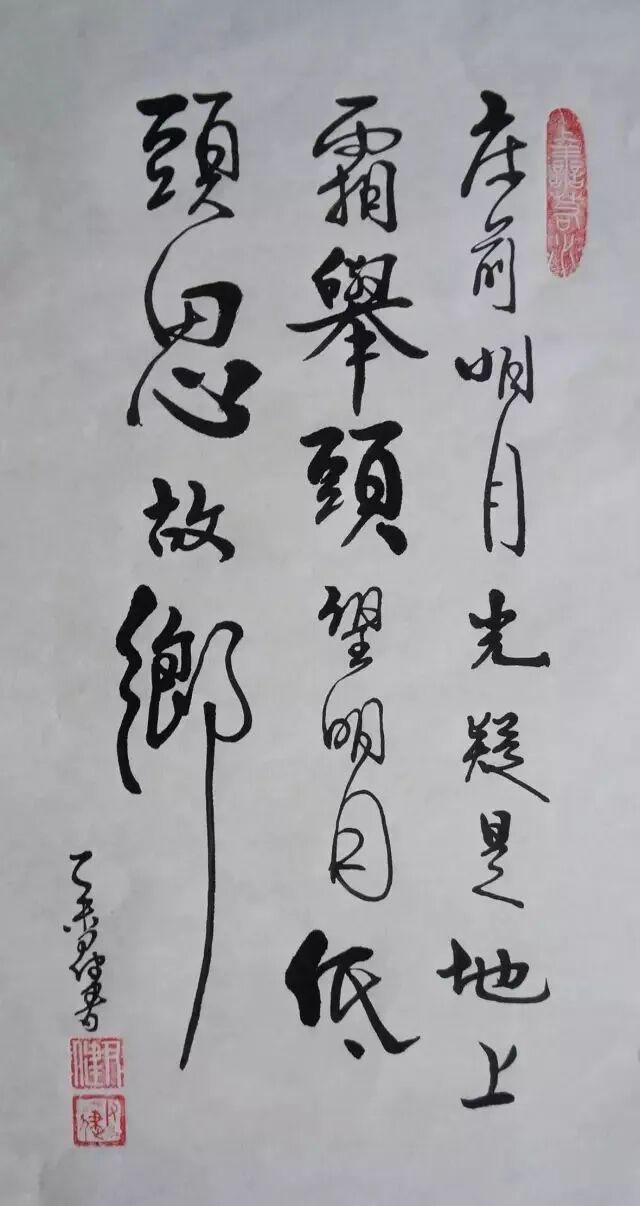 床前明月光疑是地上
霜舉頭望明月低
頭思故鄉
乙未月健書